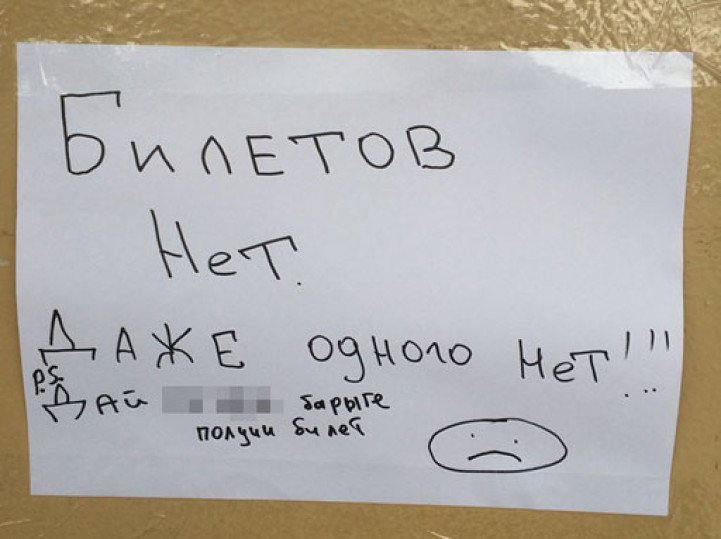 Билетов
Нет.
Даже одного нет!!!
P.S.
Дай барыге
получи билет